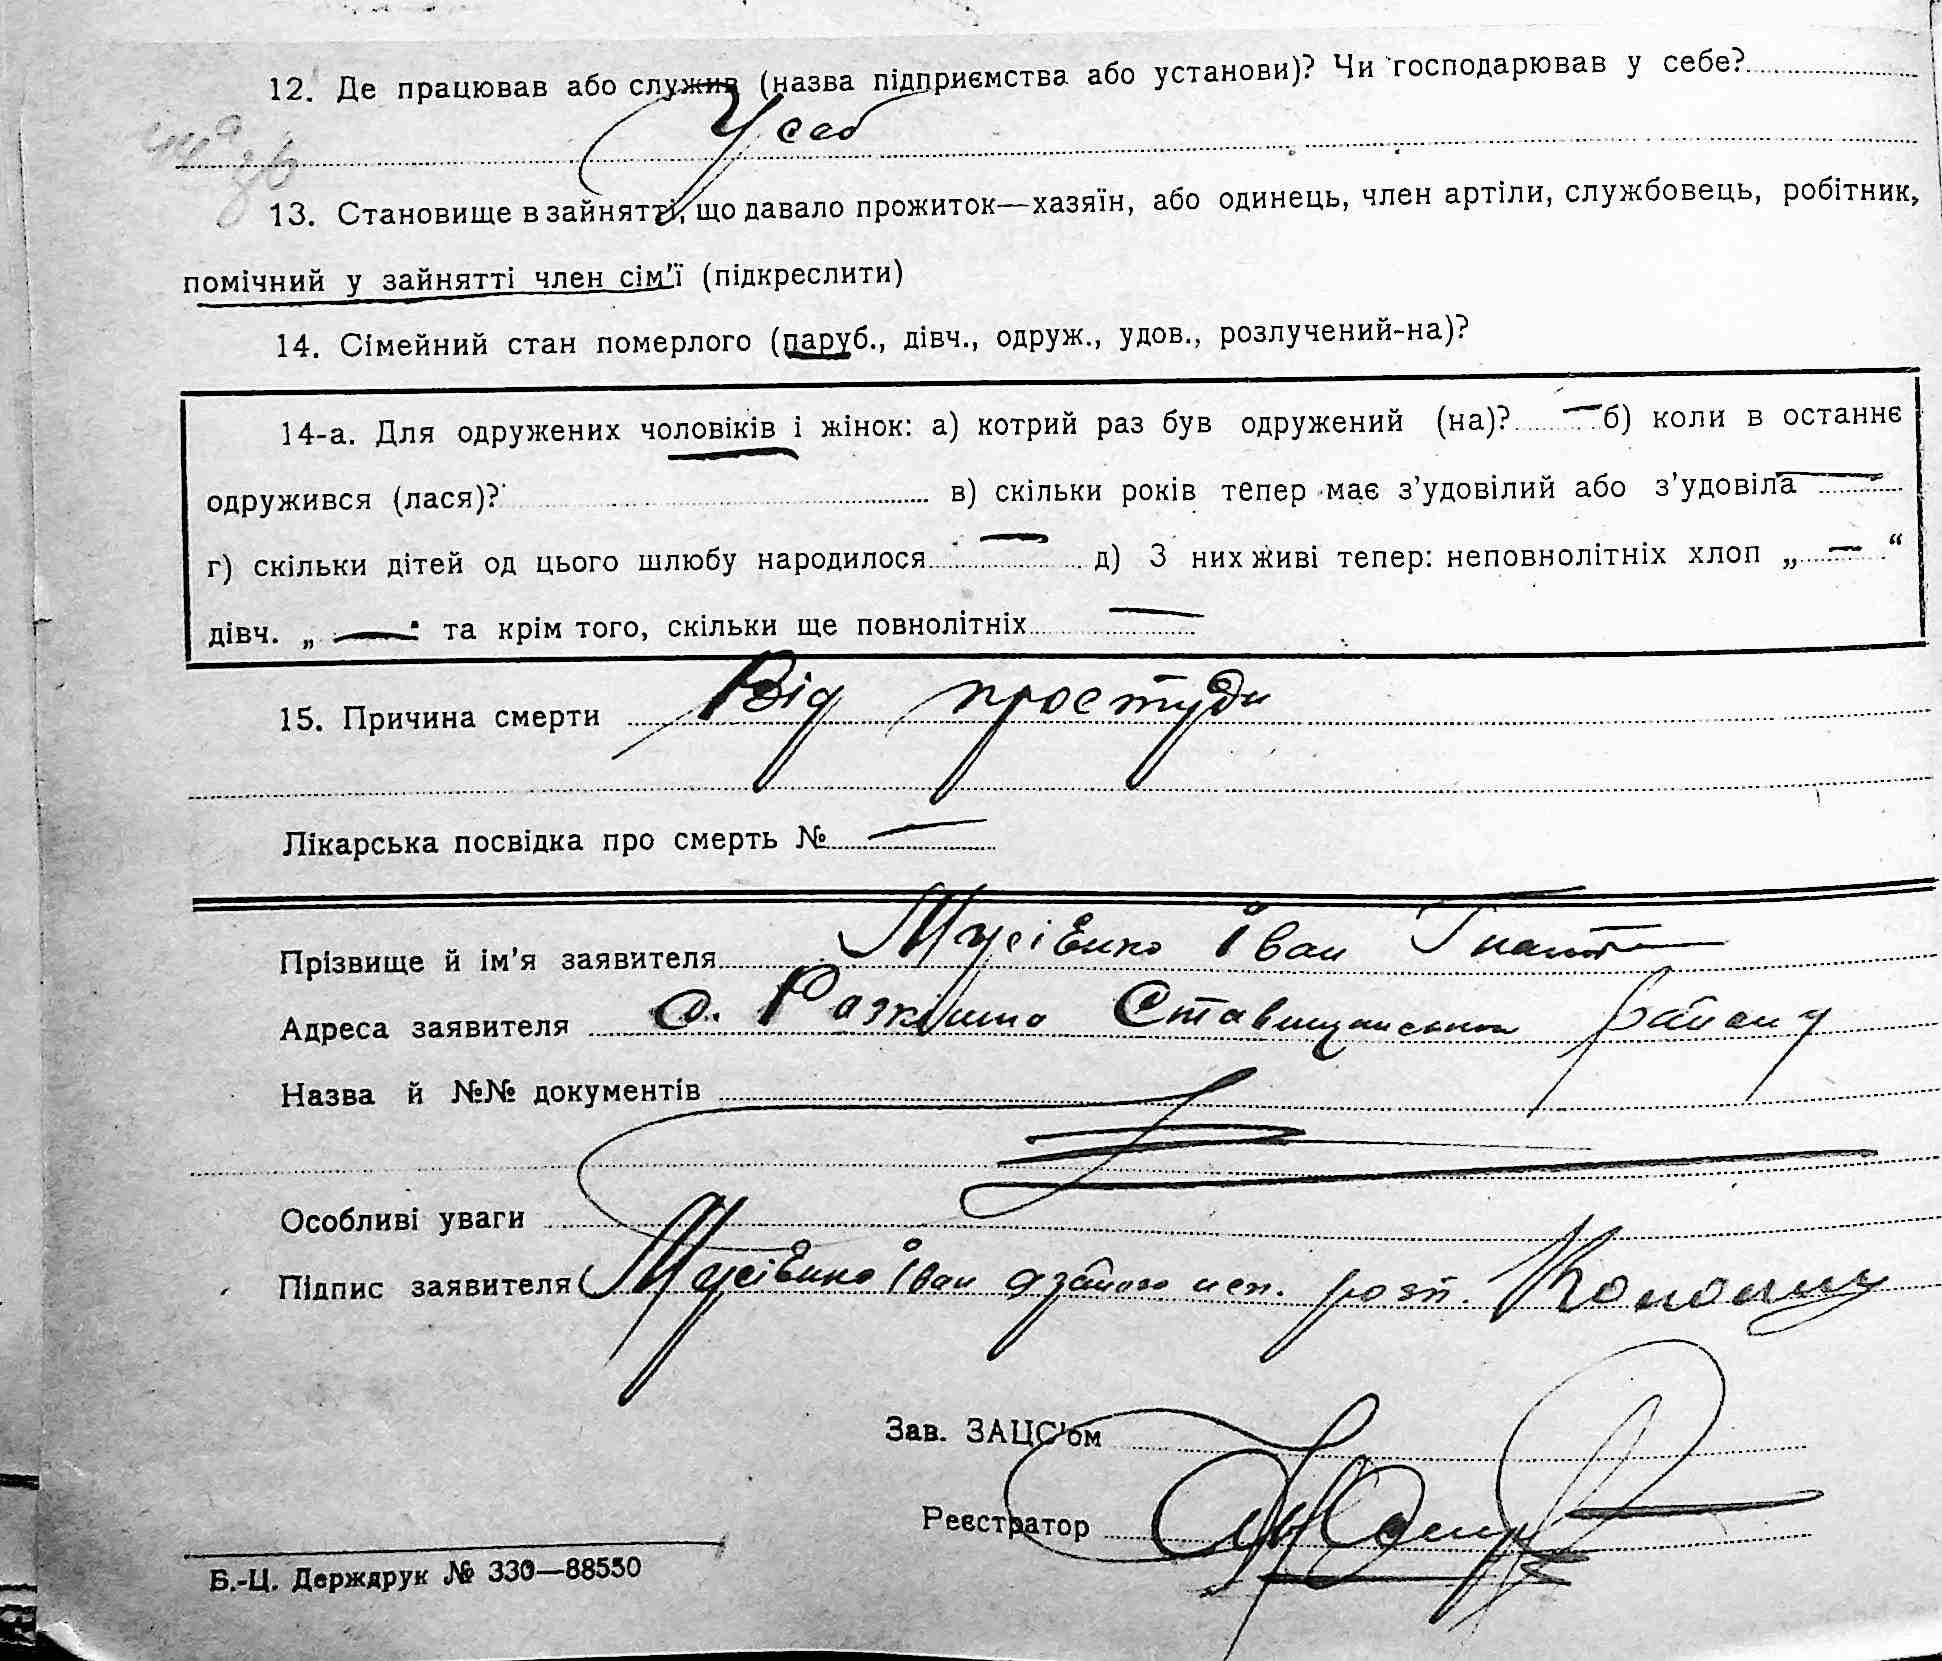 12. Де працював або служив (назва підприємства або установи)? Чи господарював у себе?
У себ
13. Становище в зайнятті, що давало прожиток—хазяїн, або одинець, член артіли, службовець, робітник,
помічний у зайнятті член сім'ї (підкреслити)
14. Сімейний стан померлого (паруб., дівч., одруж., удов., розлучений-на)?
14-а. Для одружених чоловіків і жінок: а) котрий раз був одружений (на)? — б) коли в останнє
одружився (лася)? в) скільки років тепер має з'удовілий або з'удовіла —
г) скільки дітей од цього шлюбу народилося — д) З них живі тепер: неповнолітніх хлоп „ — “
дівч. „ — “ та крім того, скільки ще повнолітніх —
15. Причина смерти Від простуди
Лікарська посвідка про смерть № —
Прізвище й ім'я заявителя Мусієнко Іван Гнат
Адреса заявителя с. Розкішна Ставищанського району
Назва й №№ документів
Особливі уваги
Підпис заявителя Мусієнко Іван розп.
Зав. ЗАЦС'ом
Реєстратор
Б.-Ц. Держдрук № 330—88550